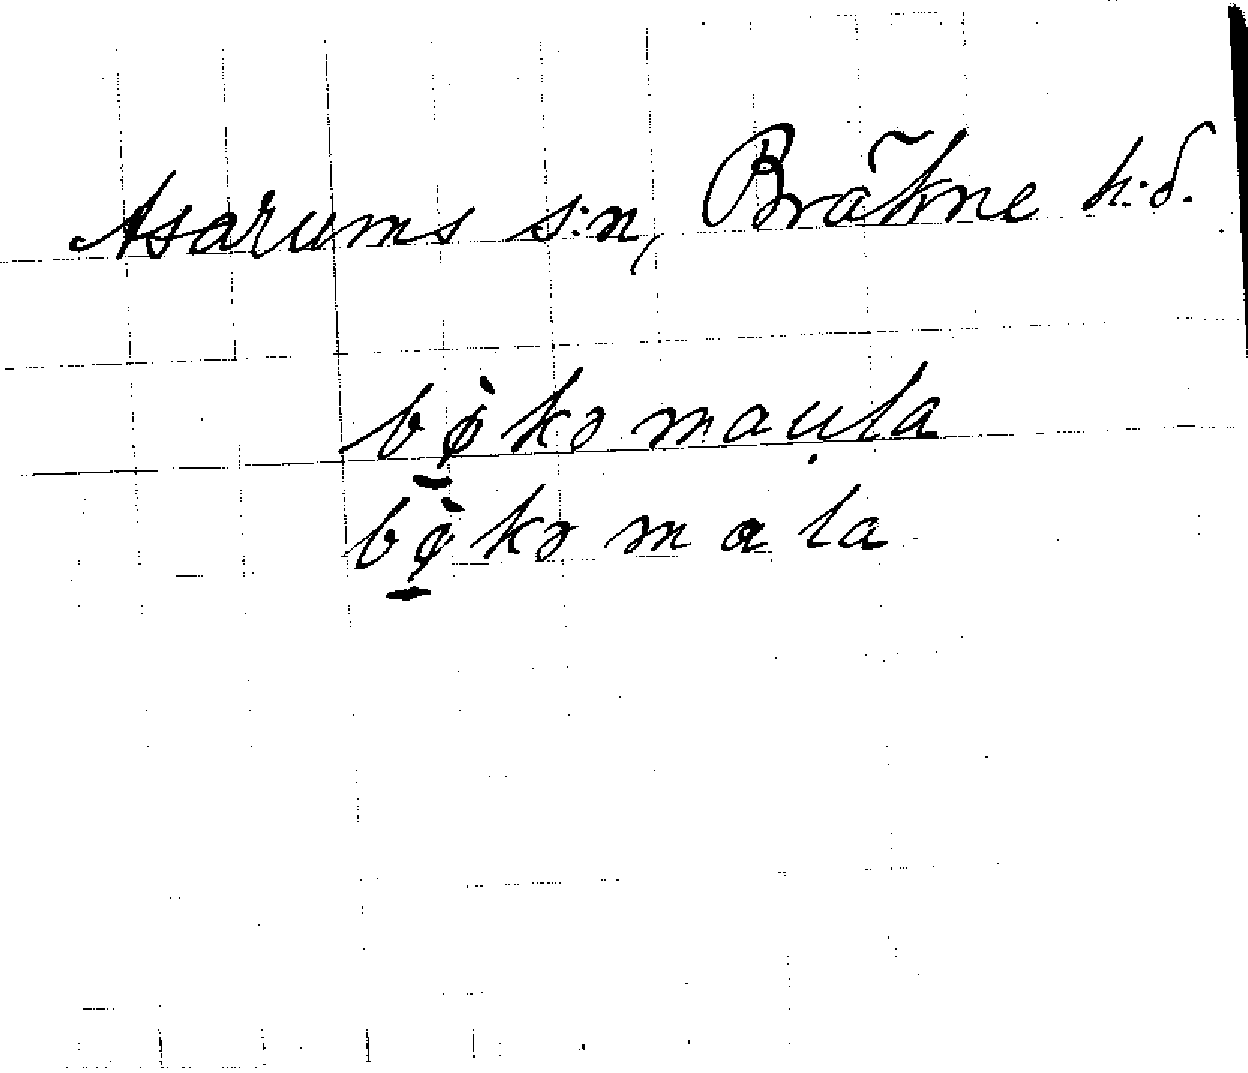 Asarums s:n, Bräkne h:d.
bø̀kə maụla
bø̀kə mala